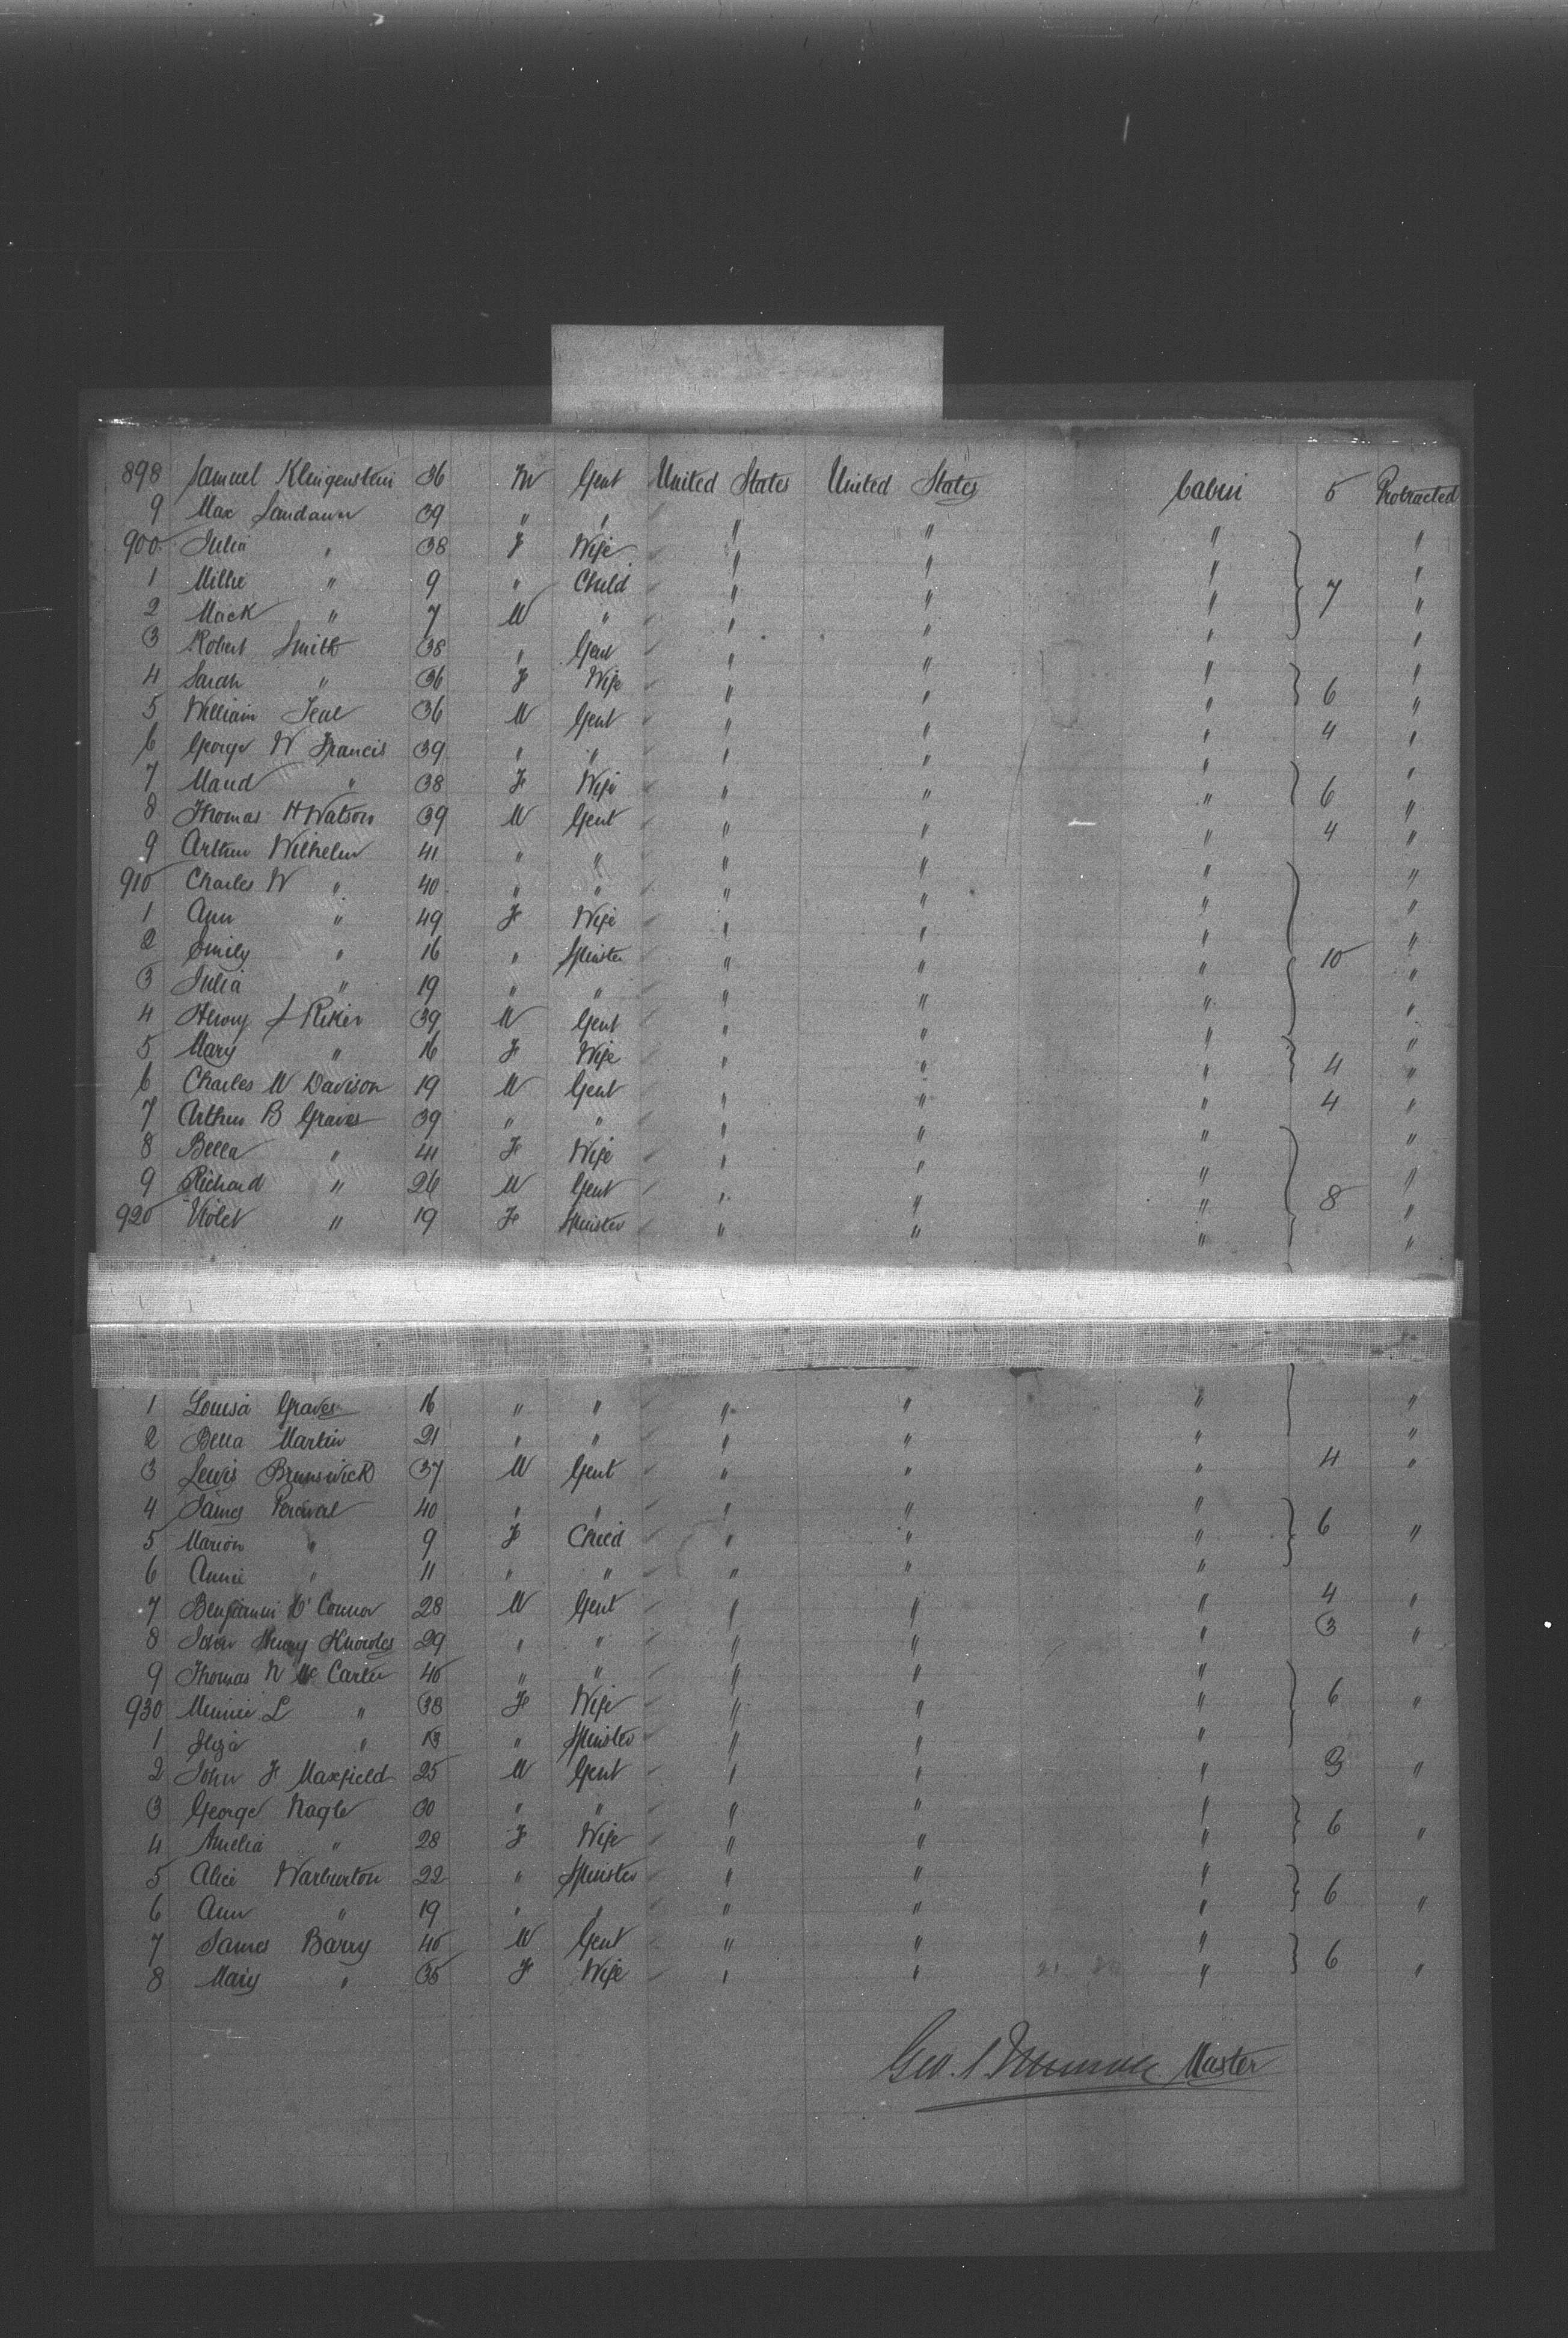 898 Samuel Klingenstein 36 M Gent United States United States Cabin 5 Protracted
9 Max Landauer 39 " " " " " "
900 Julia " 38 F Wife " " " "
1 Millie " 9 " Child " " " 7 "
2 Mack " 7 M " " " " "
3 Robert Smith 38 " Gent " " " "
4 Sarah " 36 F Wife " " " 6 "
5 William 36 M Gent " " " 4 "
6 George W Francis 39 " " " " " "
7 Maud " 38 F Wife " " " 6 "
8 Thomas H Watson 39 M Gent " " " 4 "
9 Arthur Wilhelm 41 " " " " " "
910 Charles W " 40 " " " " " "
1 Ann " 49 F Wife " " " "
2 Emily " 16 " Spinster " " " 10 "
3 Julia " 19 " " " " " "
4 Henry J Riker 39 M Gent " " " "
5 Mary " 16 F Wife " " " 4 "
6 Charles W Davison 19 M Gent " " " 4 "
7 Arthur B Graves 39 " " " " " "
8 Bella " 41 F Wife " " " "
9 Richard " 26 M Gent " " " 8 "
920 Violet " 19 F Spinster " " " "
1 Louisa Graves 16 " " " " " "
2 Bella Martin 21 " " " " " "
3 Lewis Brunswick 37 M Gent " " " 4 "
4 James Percival 40 " " " " "
5 Marion " 9 F Child " " " 6 "
6 Annie " 11 " " " " "
7 Benjamin O'Connor 28 M Gent " " " 4 "
8 John Henry Knowles 29 " " " " " 3 "
9 Thomas N Mc Carter 40 " " " " "
930 Minnie L " 38 F Wife " " " 6 "
1 Eliza " 13 " Spinster " " "
2 John F Maxfield 25 M Gent " " " 3 "
3 George Nagle 30 " " " " "
4 Amelia " 28 F Wife " " " 6 "
5 Alice Warburton 22 " Spinster " " "
6 Ann " 19 " " " " " 6 "
7 James Barry 40 M Gent " " "
8 Mary " 35 F Wife " " " 6 "
Geo. Master